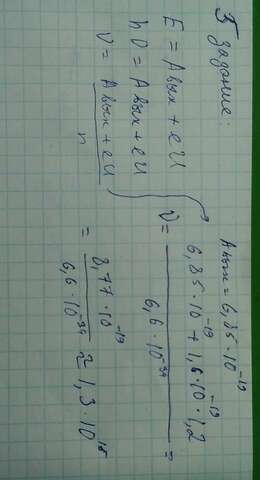 5 задание:
E = Aвых + eU
hυ = Aвых + eU
υ = (Aвых + eU) / h
Aвых = 6,85·10⁻¹⁹
υ = (6,85·10⁻¹⁹ + 1,6·10⁻¹⁹·1,2) / (6,6·10⁻³⁴) =
= (8,77·10⁻¹⁹) / (6,6·10⁻³⁴) ≈ 1,3·10¹⁵